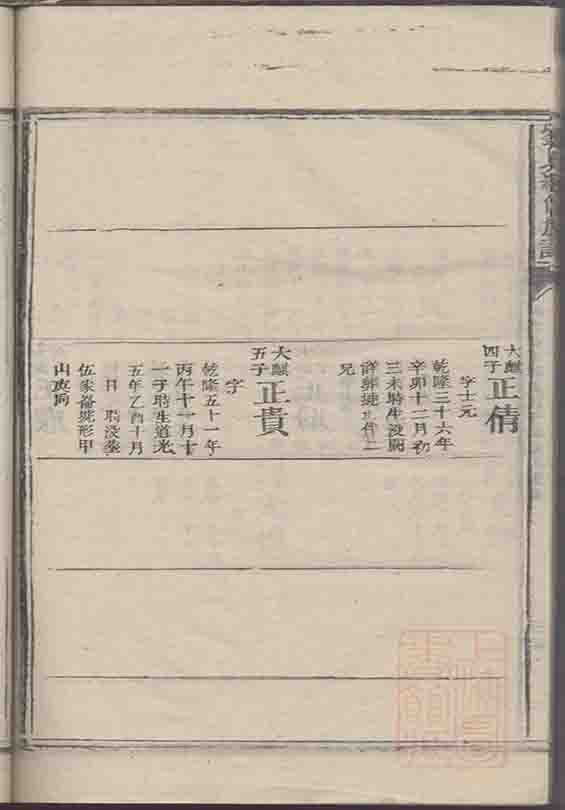 大麒
四子
正倩
字士元
乾隆三十六年
辛卯十二月初
三未時生沒闕
詳葬
兄
大麒
五子
正貴
字
乾隆五十一年
丙午十一月十
一子時生道光
五年乙酉十月
日 時没葬
伍家崙 形甲
山庚向